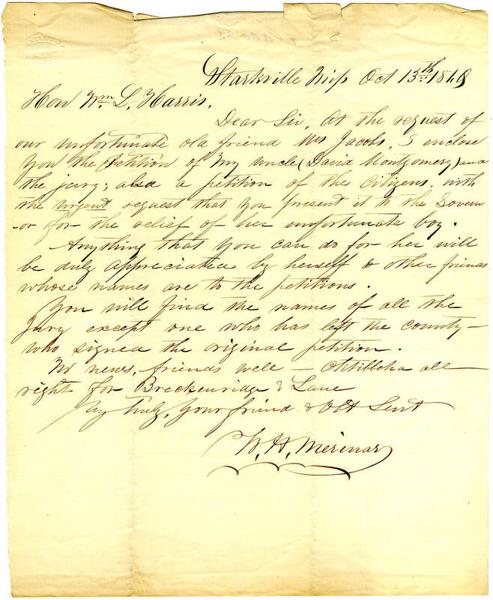 Starkville Miss Oct 13th 1860
Hon Wm L. Harris.
Dear Sir, At the request of
our unfortunate old friend Mrs Jacobs, I enclose
you the Petition of my uncle (David Montgomery) and
the jury; also a petition of the Citizens, with
the urgent request that you present it to the Govern
-or for the relief of her unfortunate boy.
Anything that you can do for her will
be duly appreciated by herself & other friends
whose names are to the petitions.
You will find the names of all the
Jury except one who has left the county—
who signed the original petition.
No news, friends well — Oktibbeha all
right for Breckenridge & Lane
Vy Truly, Your friend & Obt Servt
W. H.